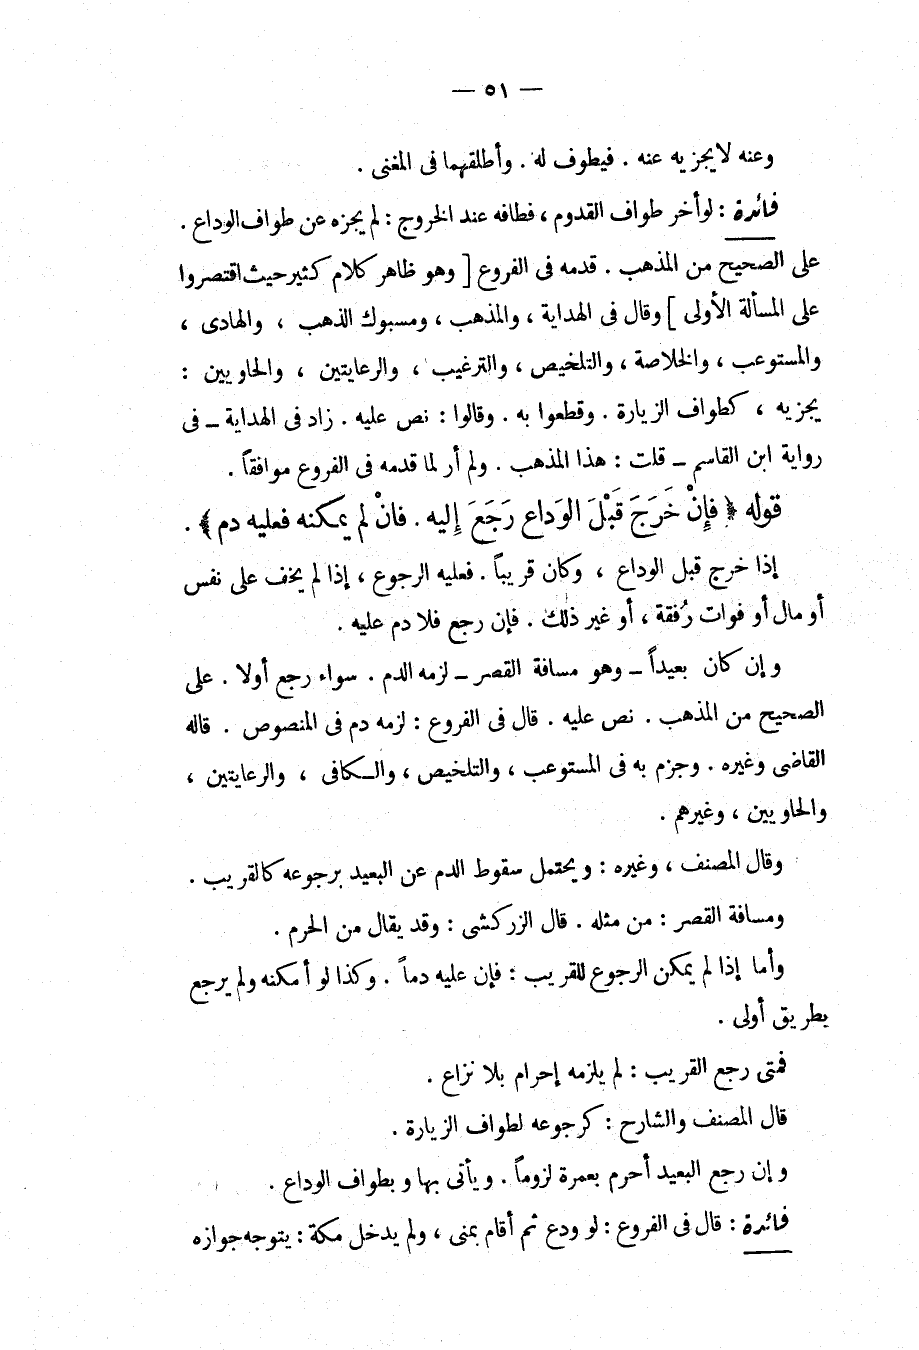 — ٥١ —
وعنه لا يجزيه عنه . فيطوف له . وأطلقهما فى المغنى .
فائدة : لو أخر طواف القدوم ، فطافه عند الخروج : لم يجزه عن طواف الوداع .
على الصحيح من المذهب . قدمه فى الفروع [ وهو ظاهر كلام كثير حيث اقتصروا
على المسألة الأولى ] وقال فى الهداية ، والمذهب ، ومسبوك الذهب ، والهادى ،
والمستوعب ، والخلاصة ، والتلخيص ، والترغيب ، والرعايتين ، والحاويين :
يجزيه ، كطواف الزيارة . وقطعوا به . وقالوا : نص عليه . زاد فى الهداية ــ فى
رواية ابن القاسم ــ قلت : هذا المذهب . ولم أر لما قدمه فى الفروع موافقاً .
قوله ﴿ فإِنْ خَرَجَ قَبْلَ الوَداع رَجَعَ إِليه . فانْ لم يمكنه فعليه دم ﴾ .
إذا خرج قبل الوداع ، وكان قريباً . فعليه الرجوع ، إذا لم يخف على نفس
أو مال أو فوات رُفقة ، أو غير ذلك . فإن رجع فلا دم عليه .
وإن كان بعيداً ــ وهو مسافة القصر ــ لزمه الدم . سواء رجع أولا . على
الصحيح من المذهب . نص عليه . قال فى الفروع : لزمه دم فى المنصوص . قاله
القاضى وغيره . وجزم به فى المستوعب ، والتلخيص ، والـكافى ، والرعايتين ،
والحاويين ، وغيرهم .
وقال المصنف ، وغيره : ويحتمل سقوط الدم عن البعيد برجوعه كالقريب .
ومسافة القصر : من مثله . قال الزركشى : وقد يقال من الحرم .
وأما إذا لم يمكن الرجوع للقريب : فإن عليه دماً . وكذا لو أمكنه ولم يرجع
بطريق أولى .
فمتى رجع القريب : لم يلزمه إحرام بلا نزاع .
قال المصنف والشارح : كرجوعه لطواف الزيارة .
وإن رجع البعيد أحرم بعمرة لزوماً . ويأتى بها وبطواف الوداع .
فائدة : قال فى الفروع : لو ودع ثم أقام بمنى ، ولم يدخل مكة : يتوجه جوازه